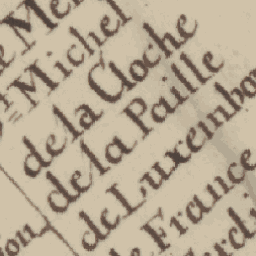 Michel
de la Cloche
de la Paille
de Luxembo
de France